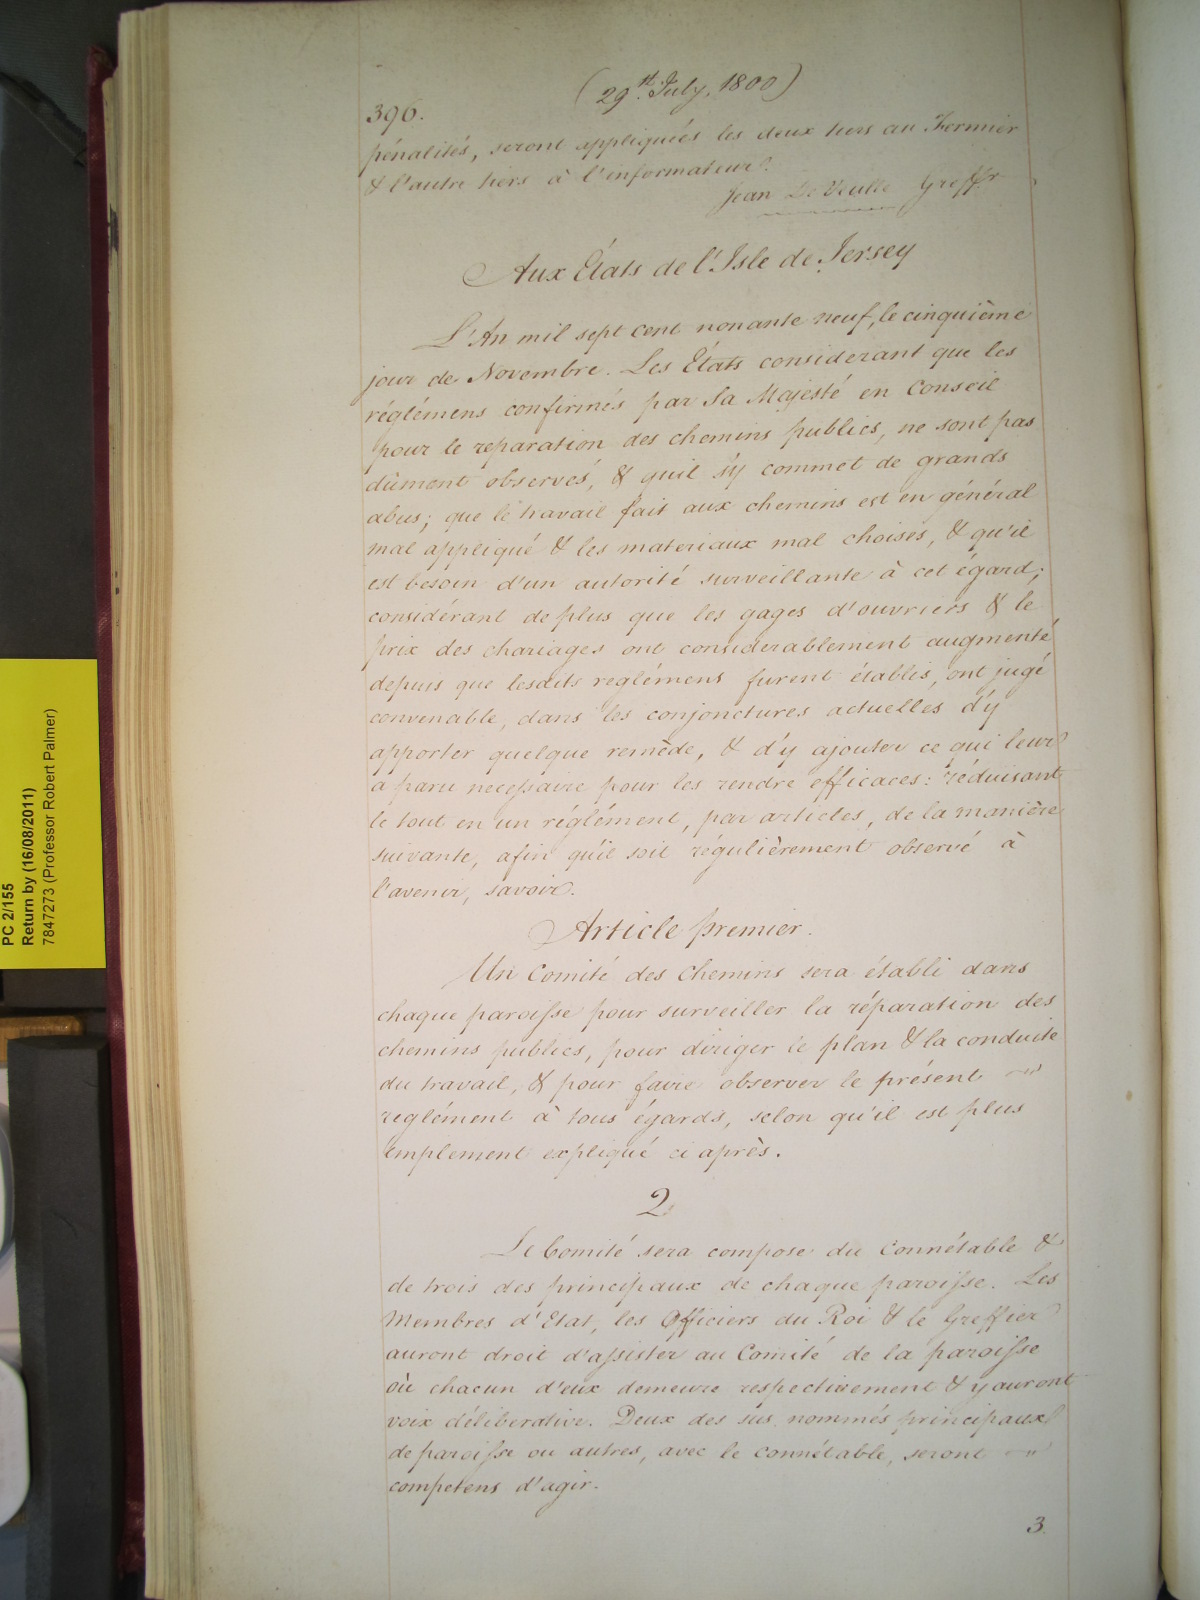 (29st. July, 1800)
396.
pénalités, seront appliquées les deux tiers au Fermier
& l'autre tiers à l'informateur.
Jean De Veulle Greffr
Aux États de l'Isle de Jersey
L'An mil sept cent nonante neuf, le cinquième
jour de Novembre. Les États considerant que les
réglémens confirmés par Sa Majesté en Conseil
pour le reparation des chemins publics, ne sont pas
dûment observés, & quil s'y commet de grands
abus; que le travail fait aux chemins est en général
mal appliqué & les materiaux mal choisis, & qu'il
est besoin d'un autorité surveillante à cet égard;
considérant de plus que les gages d'ouvriers & le
prix des chariages ont considerablement augmenté
depuis que lesdits reglémens furent établis, ont jugé
convenable, dans les conjonctures actuelles d'y
apporter quelque remède, & d'y ajouter ce qui leur
a paru necessaire pour les rendre efficaces: réduisant
le tout en un réglément, par articles, de la manière
suivante, afin qu'il soit régulièrement observé à
l'avenir, savoir.
Article premier.
Un Comité des Chemins sera établi dans
chaque paroisse pour surveiller la réparation des
chemins publics, pour diriger le plan & la conduite
du travail, & pour faire observer le présent
reglément à tous égards, selon qu'il est plus
amplement expliqué ci après.
2
Le Comité sera compose du Connétable &
de trois des principaux de chaque paroisse. Les
Membres d'Etat, les Officiers du Roi & le Greffier
auront droit d'assister au Comité de la paroisse
où chacun d'eux demeure respectivement & y auront
voix déliberative. Deux des sus nommés principaux
de paroisse ou autres, avec le connétable, seront
competens d'agir.
3
PC 2/155
Return by (16/08/2011)
7847273 (Professor Robert Palmer)